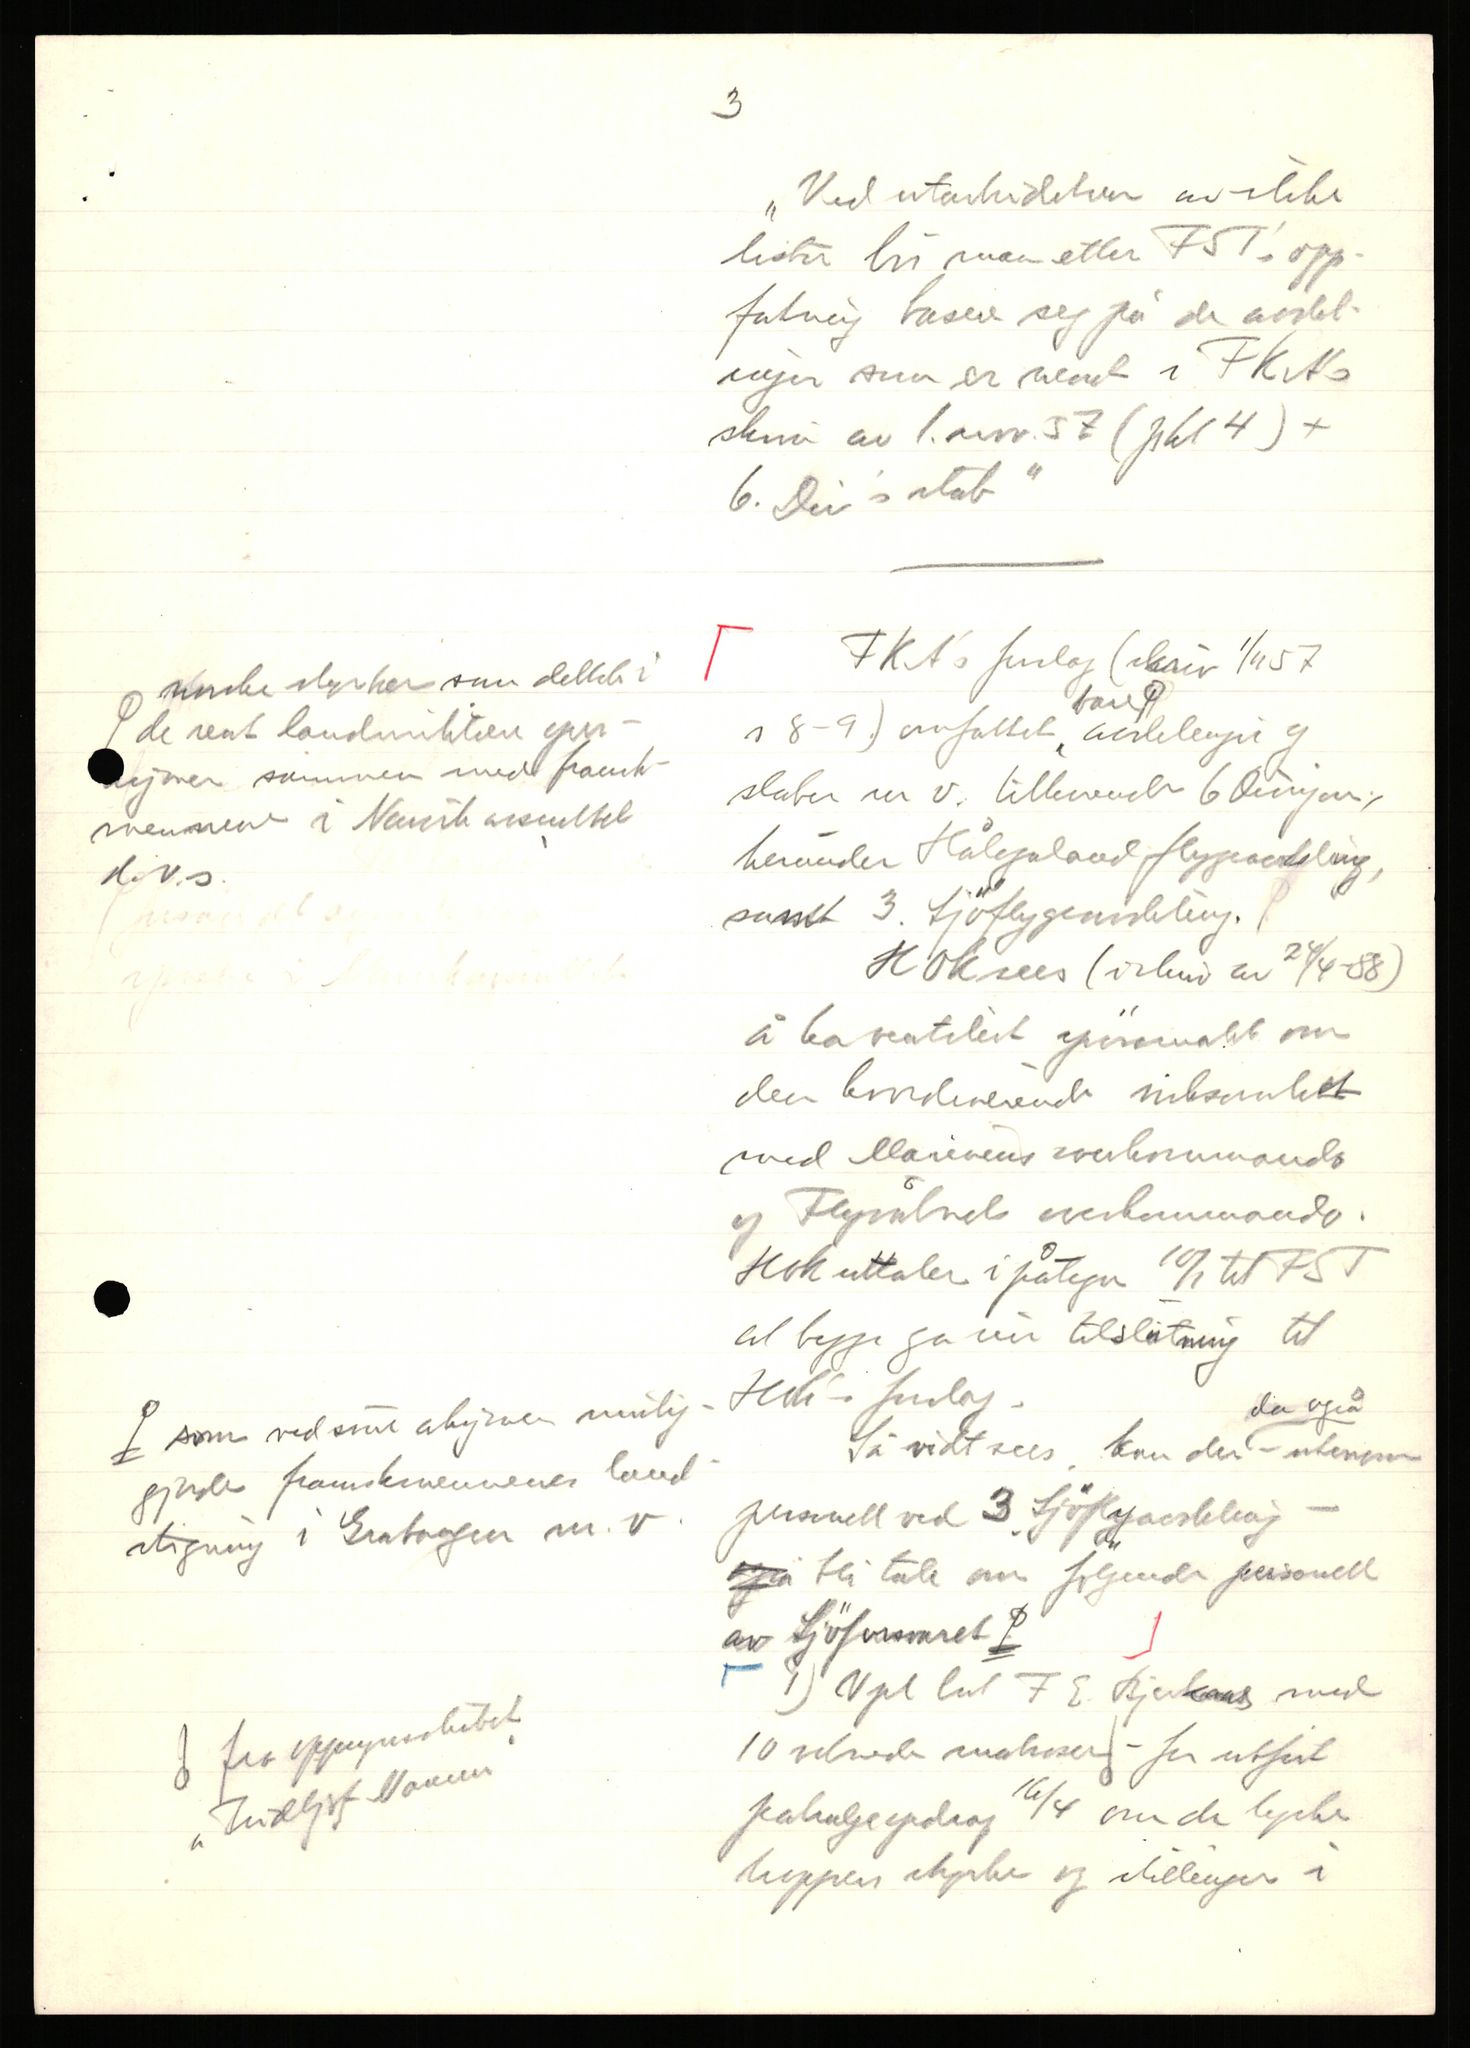 3
„Ved utarbeidelsen av slike
lister bör man etter FST's opp-
fatning basere seg på de avdel-
inger som er nevnt i FKA's
skriv av 1. nov. 57 (pkt 4) +
6. Div's stab"
FKA's forslag (skriv 1/11 57
bare
s 8-9) omfattet avdelinger og
staber m v. tilhörende 6 Divisjon,
herunder Hålogaland flygeavdeling,
samt 3. Sjöflygeavdeling.
HOK sees (i skriv av 24/4-58)
å ha ventilert spörsmålet om
den koordinerende virksomhet
med Marinens overkommando
og Flyvåpnets overkommando.
HOK uttaler i påtegn 10/1 til FST
at begge ga sin tilslutning til
HOK's forslag.
Så vidt sees, kan der - utenom
da også
personell ved 3. Sjöflyavdeling -
også bli tale om fölgende personell
av Sjöforsvaret
1) Vpl lnt F E med
10 vervede matroser - for utfört
patruljeopdrag 16/4 om de tyske
troppers styrke og stillinger i
norske styrker som deltok i
de rent landmilitære oper-
asjoner sammen med fransk-
mennene i Narvikavsnittet
d.v.s.
som ved sine aksjoner mulig-
gjorde franskmennenes land-
stigning i Gratangen m. v.
fra oppsynsskibet
„Fridtjof Nansen"